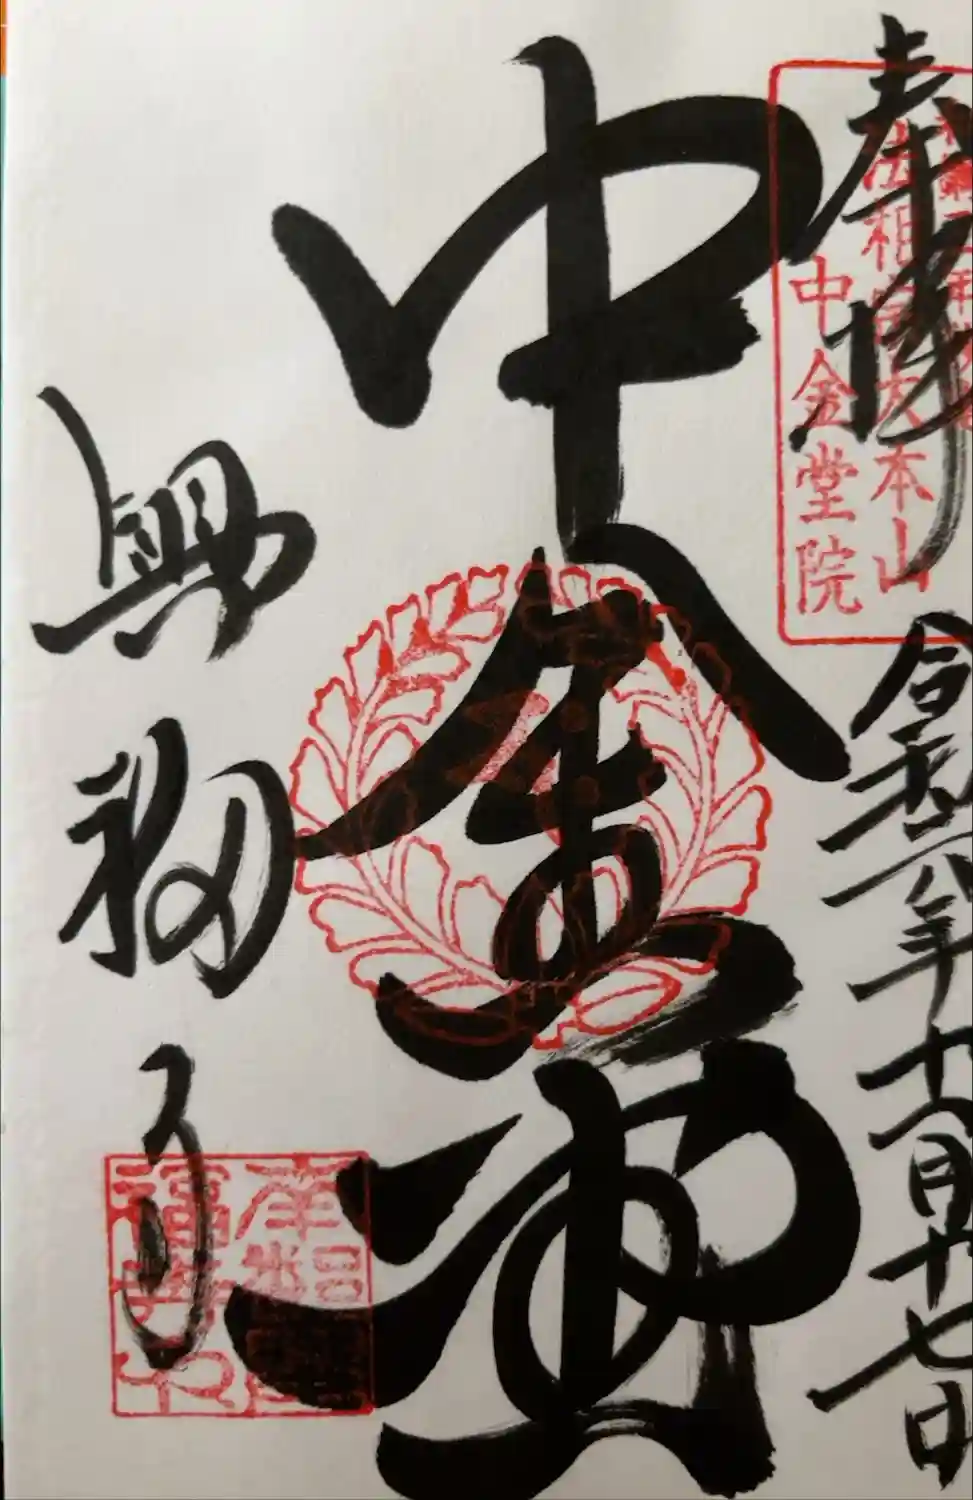 奉拝
令和六年十一月十七日
法相宗大本山
中金堂院
中金堂
興福寺